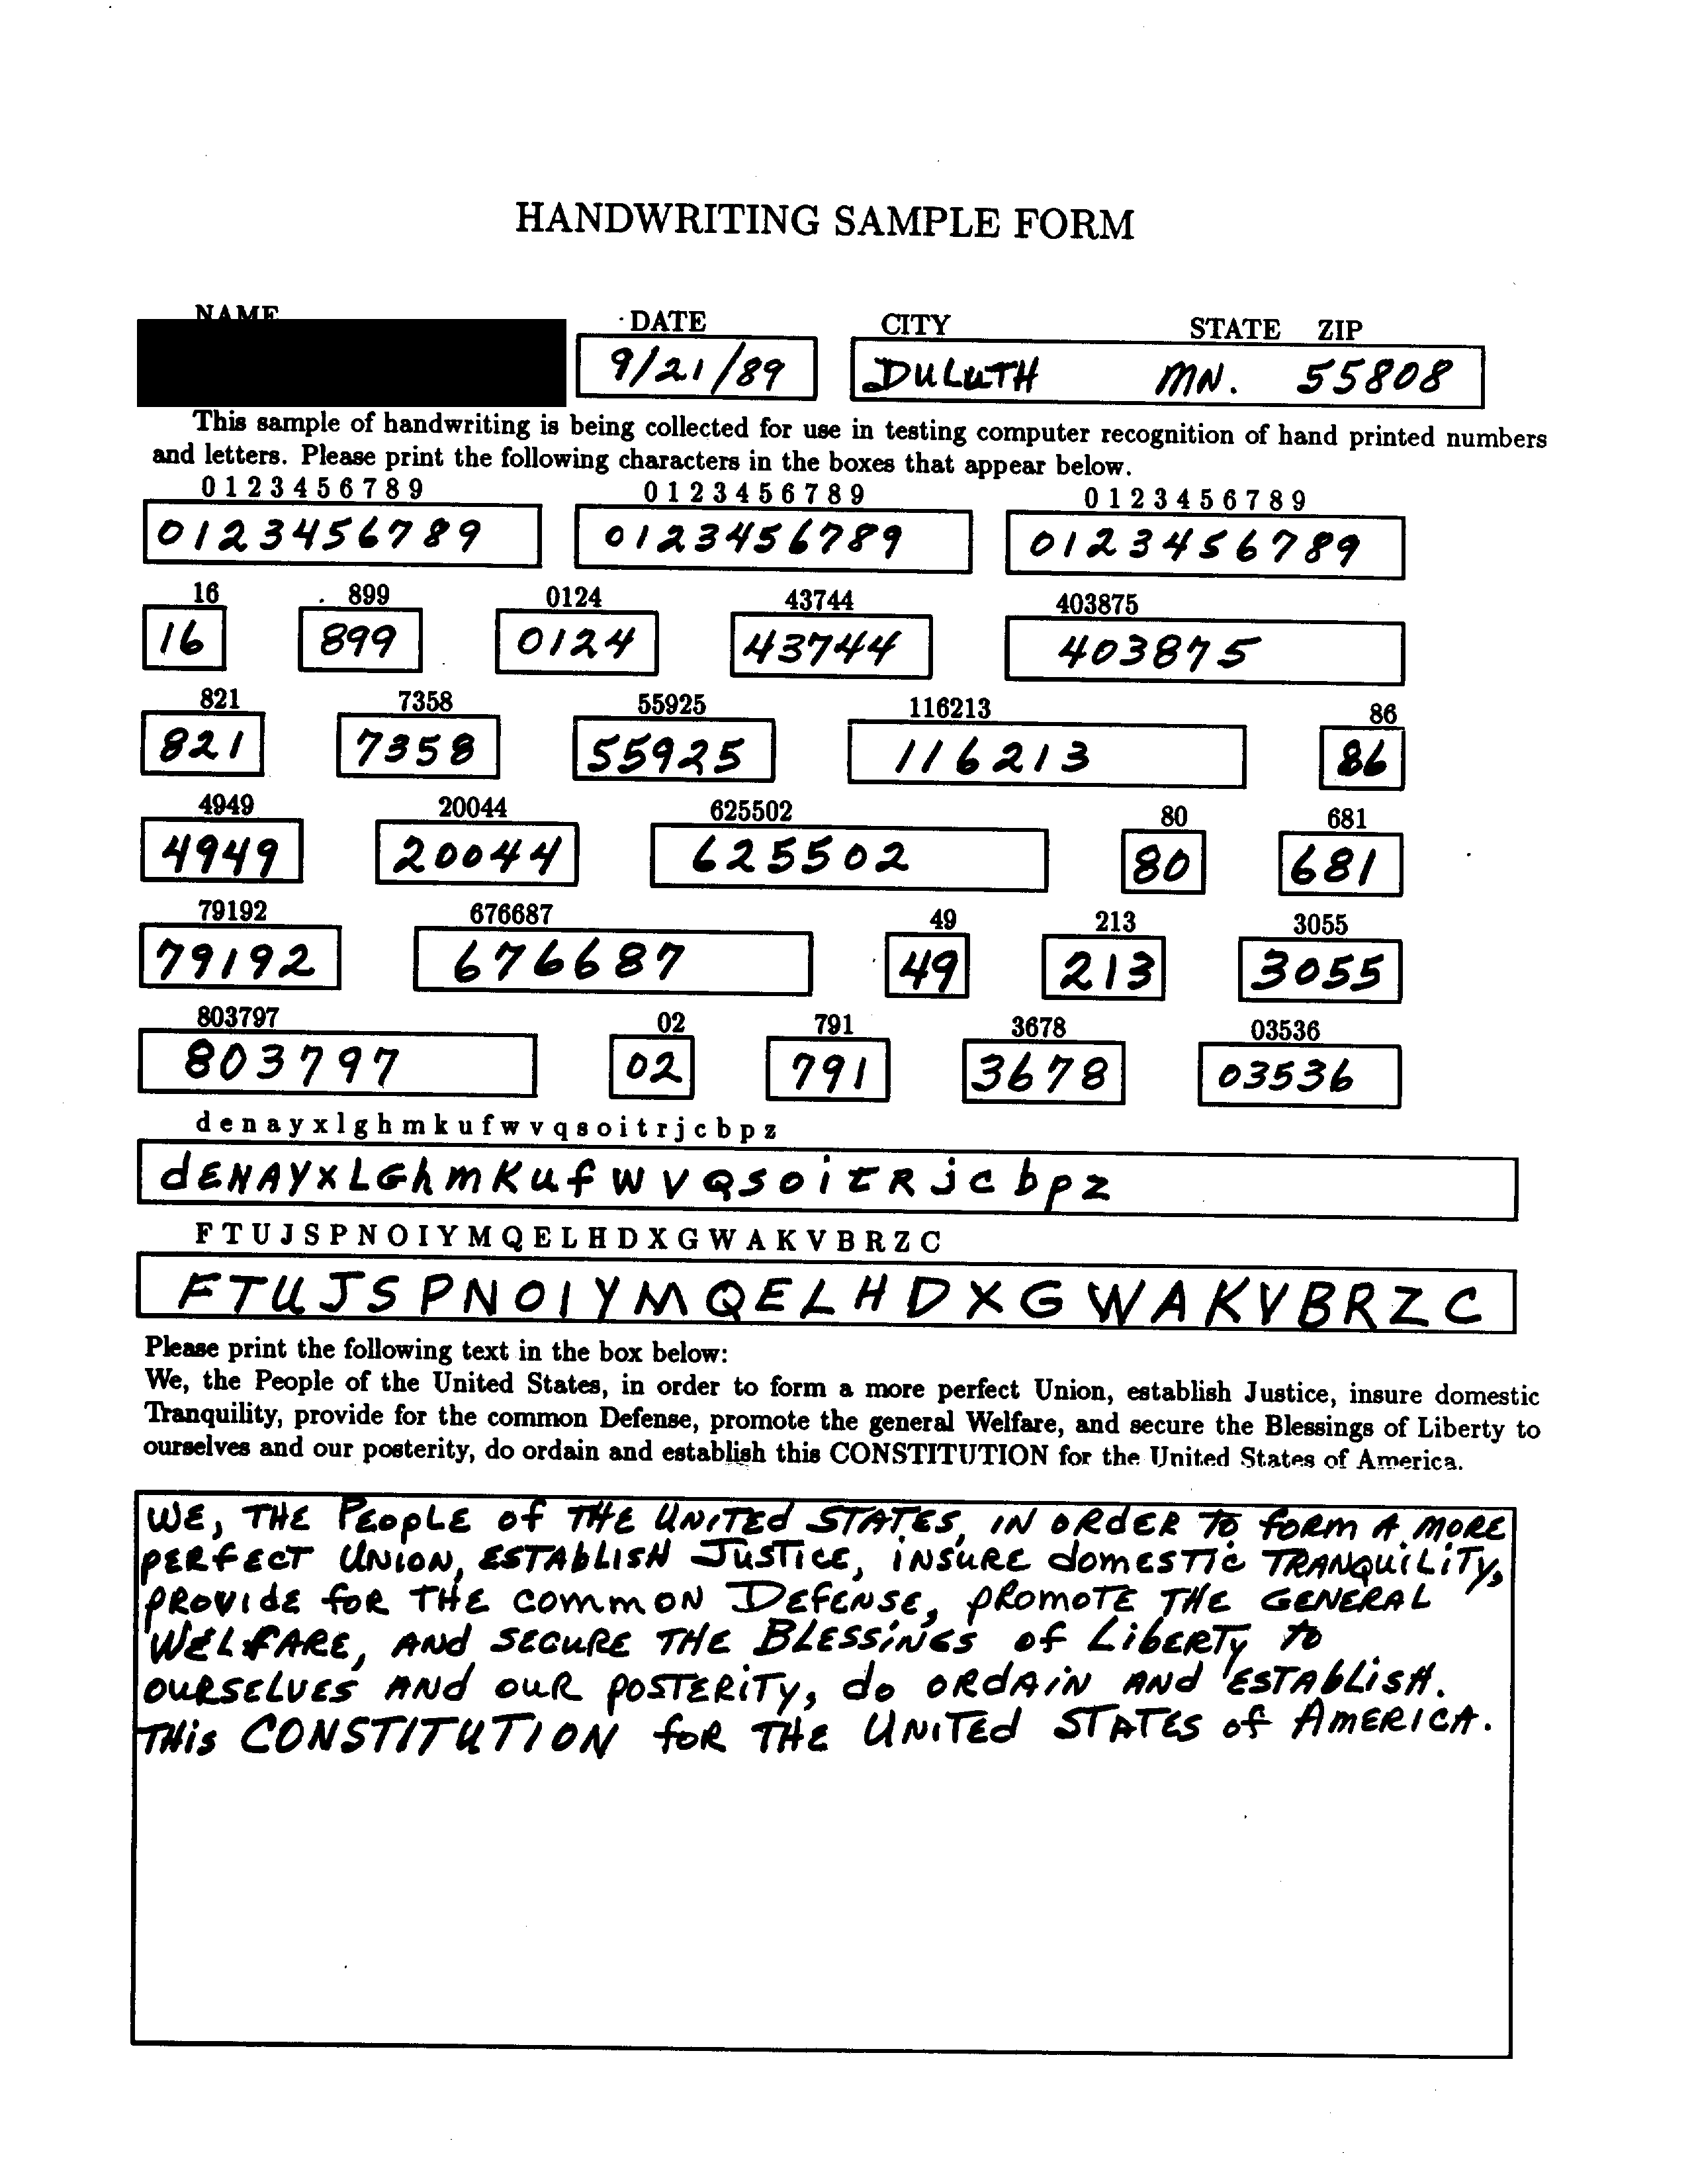 HANDWRITING SAMPLE FORM
NAME DATE CITY STATE ZIP
9/21/89 DULUTH MN. 55808
This sample of handwriting is being collected for use in testing computer recognition of hand printed numbers
and letters. Please print the following characters in the boxes that appear below.
0 1 2 3 4 5 6 7 8 9 0 1 2 3 4 5 6 7 8 9 0 1 2 3 4 5 6 7 8 9
0123456789 0123456789 0123456789
16 899 0124 43744 403875
16 899 0124 43744 403875
821 7358 55925 116213 86
821 7358 55925 116213 86
4949 20044 625502 80 681
4949 20044 625502 80 681
79192 676687 49 213 3055
79192 676687 49 213 3055
803797 02 791 3678 03536
803797 02 791 3678 03536
d e n a y x l g h m k u f w v q s o i t r j c b p z
dENAYxLGhmKufwvQSoitRjcbpz
F T U J S P N O I Y M Q E L H D X G W A K V B R Z C
FTUJSPNOIYMQELHDXGWAKVBRZC
Please print the following text in the box below:
We, the People of the United States, in order to form a more perfect Union, establish Justice, insure domestic
Tranquility, provide for the common Defense, promote the general Welfare, and secure the Blessings of Liberty to
ourselves and our posterity, do ordain and establish this CONSTITUTION for the United States of America.
WE, THE PEopLE of THE UNiTEd STATES, IN ORdER To foRm A MORE
PERfECT UNION, ESTAbLISH JUSTICE, iNSURE domESTic TRANquiLiTy,
PROVidE foR THE commON DEfENSE, pRomoTE THE GENERAL
WELfARE, ANd SECURE THE BLESSiNGS of LibERTy to
OURSELVES ANd OUR POSTERiTy, do ORdAiN ANd ESTAbLiSH.
THiS CONSTITUTION foR THE UNiTEd STATES of AMERICA.